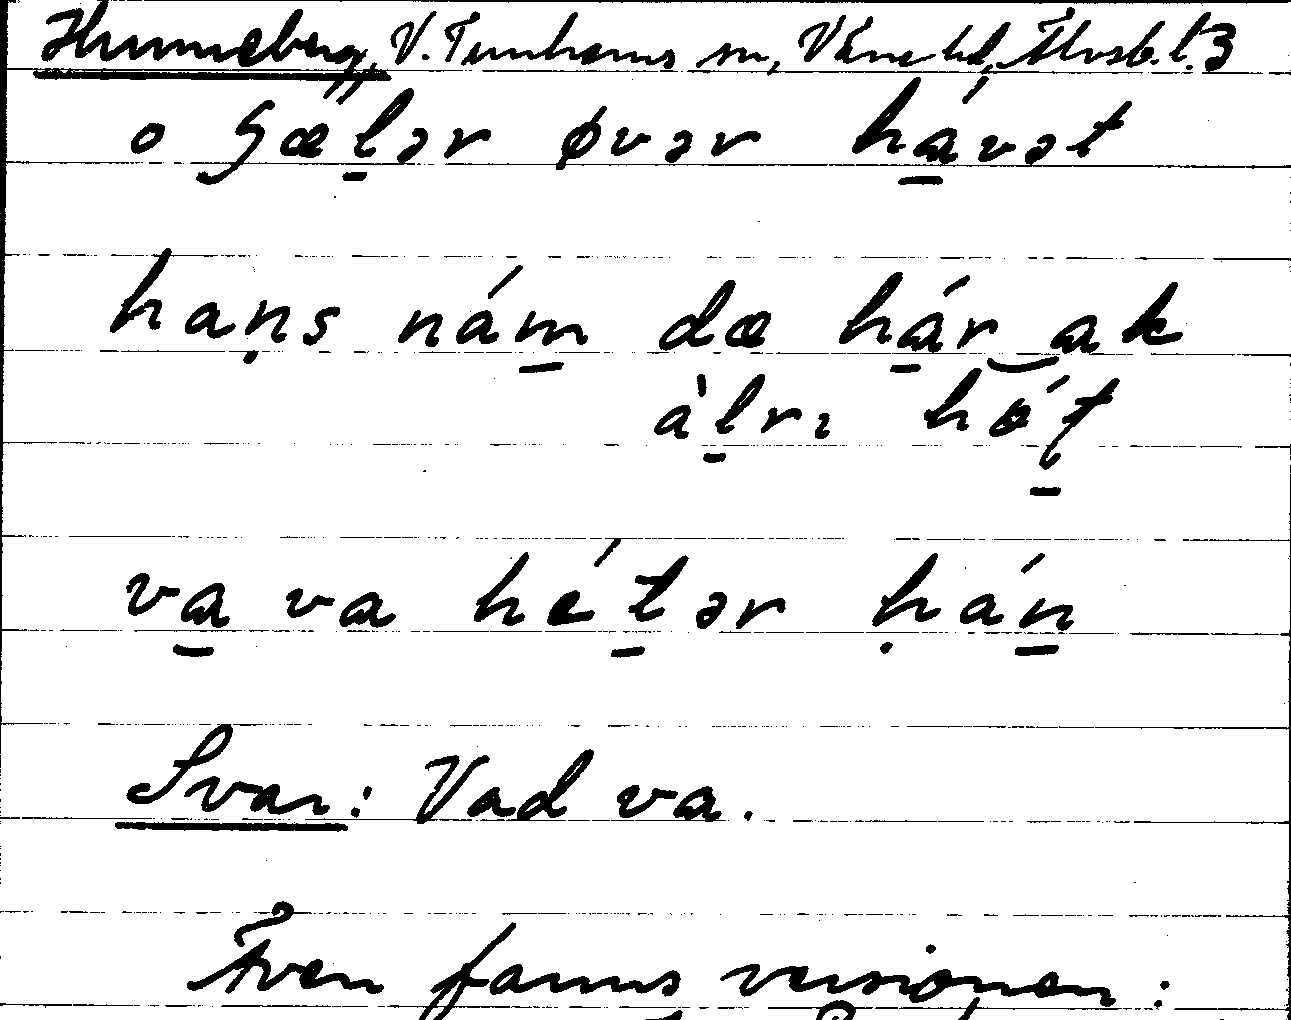 Hunneberg, V. Tunhems sn, Väne hd, Älvsb. l. 3
o gǽl̠ər øvər há̠vət
haṇs nám̠ dæ há̠r‿ak
àl̠rı hót̠
va̠ va hét̠ər ḥán̠
Svar: Vad va.
Även fanns versionen: